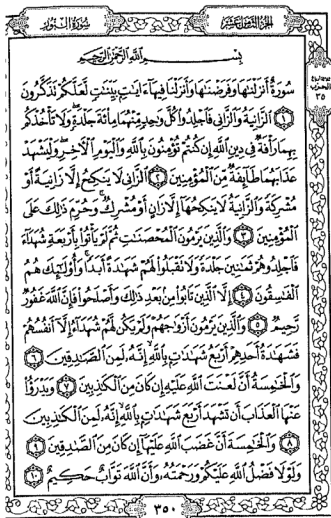 الجزء الثامن عشر
سورة النور
بِسْمِ اللَّهِ الرَّحْمَٰنِ الرَّحِيمِ
سُورَةٌ أَنزَلْنَاهَا وَفَرَضْنَاهَا وَأَنزَلْنَا فِيهَا آيَاتٍ بَيِّنَاتٍ لَّعَلَّكُمْ تَذَكَّرُونَ
١ الزَّانِيَةُ وَالزَّانِي فَاجْلِدُوا كُلَّ وَاحِدٍ مِّنْهُمَا مِائَةَ جَلْدَةٍ وَلَا تَأْخُذْكُم
بِهِمَا رَأْفَةٌ فِي دِينِ اللَّهِ إِن كُنتُمْ تُؤْمِنُونَ بِاللَّهِ وَالْيَوْمِ الْآخِرِ وَلْيَشْهَدْ
عَذَابَهُمَا طَائِفَةٌ مِّنَ الْمُؤْمِنِينَ ٢ الزَّانِي لَا يَنكِحُ إِلَّا زَانِيَةً أَوْ
مُشْرِكَةً وَالزَّانِيَةُ لَا يَنكِحُهَا إِلَّا زَانٍ أَوْ مُشْرِكٌ وَحُرِّمَ ذَٰلِكَ عَلَى
الْمُؤْمِنِينَ ٣ وَالَّذِينَ يَرْمُونَ الْمُحْصَنَاتِ ثُمَّ لَمْ يَأْتُوا بِأَرْبَعَةِ شُهَدَاءَ
فَاجْلِدُوهُمْ ثَمَانِينَ جَلْدَةً وَلَا تَقْبَلُوا لَهُمْ شَهَادَةً أَبَدًا وَأُولَٰئِكَ هُمُ
الْفَاسِقُونَ ٤ إِلَّا الَّذِينَ تَابُوا مِن بَعْدِ ذَٰلِكَ وَأَصْلَحُوا فَإِنَّ اللَّهَ غَفُورٌ
رَّحِيمٌ ٥ وَالَّذِينَ يَرْمُونَ أَزْوَاجَهُمْ وَلَمْ يَكُن لَّهُمْ شُهَدَاءُ إِلَّا أَنفُسُهُمْ
فَشَهَادَةُ أَحَدِهِمْ أَرْبَعُ شَهَادَاتٍ بِاللَّهِ إِنَّهُ لَمِنَ الصَّادِقِينَ ٦
وَالْخَامِسَةُ أَنَّ لَعْنَتَ اللَّهِ عَلَيْهِ إِن كَانَ مِنَ الْكَاذِبِينَ ٧ وَيَدْرَؤُا
عَنْهَا الْعَذَابَ أَن تَشْهَدَ أَرْبَعَ شَهَادَاتٍ بِاللَّهِ إِنَّهُ لَمِنَ الْكَاذِبِينَ
٨ وَالْخَامِسَةَ أَنَّ غَضَبَ اللَّهِ عَلَيْهَا إِن كَانَ مِنَ الصَّادِقِينَ ٩
وَلَوْلَا فَضْلُ اللَّهِ عَلَيْكُمْ وَرَحْمَتُهُ وَأَنَّ اللَّهَ تَوَّابٌ حَكِيمٌ ١٠
الحزب
٣٥
٣٥٠